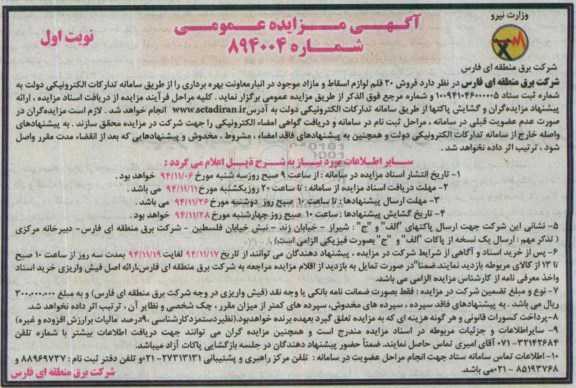 وزارت نیرو
آگهی مـزایده عمومی
شماره ۸۹۴۰۰۴
نوبت اول
شرکت برق منطقه ای فارس
شرکت برق منطقه ای فارس در نظر دارد فروش ۲۰ قلم لوازم اسقاط و مازاد موجود در انبارمعاونت بهره برداری را از طریق سامانه تدارکات الکترونیکی دولت به
شماره ثبت ستاد ۱۰۰۹۴۱۰۴۶۰۰۰۰۰۵ و شماره مرجع فوق الذکر از طریق مزایده عمومی برگزار نماید . کلیه مراحل فرآیند مزایده از دریافت اسناد مزایده ، ارائه
پیشنهاد مزایده‌گران و گشایش پاکتها از طریق سامانه تدارکات الکترونیکی دولت به آدرس www.setadiran.ir انجام خواهد شد . لازم است مزایده‌گران در
صورت عدم عضویت قبلی در سامانه ، مراحل ثبت نام در سامانه و دریافت گواهی امضاء الکترونیکی را جهت شرکت در مزایده محقق سازند . به پیشنهادهای
واصله خارج از سامانه تدارکات الکترونیکی دولت و همچنین به پیشنهادهای فاقد امضاء ، مشروط ، مخدوش و پیشنهادهایی که بعد از انقضاء مدت مقرر واصل
شود ، ترتیب اثر داده نخواهد شد .
سایر اطلاعات مورد نیاز به شرح ذیل اعلام می گردد :
۱- تاریخ انتشار اسناد مزایده در سامانه : از ساعت ۹ صبح روز سه شنبه مورخ ۹۴/۱۱/۰۶ خواهد بود .
۲- مهلت دریافت اسناد مزایده از سامانه : تا ساعت ۲۰ روز یکشنبه مورخ ۹۴/۱۱/۱۱ می باشد .
۳- مهلت ارسال پیشنهادها : تا ساعت ۱۰ صبح روز دوشنبه مورخ ۹۴/۱۱/۲۶ می باشد .
۴- تاریخ گشایش پیشنهادها : ساعت ۱۰ صبح روز چهارشنبه مورخ ۹۴/۱۱/۲۸ خواهد بود .
۵- نشانی این شرکت جهت ارسال پاکتهای "الف" و "ج" : شیراز - خیابان زند - نبش خیابان فلسطین - شرکت برق منطقه ای فارس- دبیرخانه مرکزی
( تذکر مهم : ارسال یک نسخه از پاکات "الف" و "ج" بصورت فیزیکی الزامی است)
۶- پس از خرید اسناد و آگاهی از شرایط شرکت در مزایده ، پیشنهاد دهندگان می توانند از تاریخ ۹۴/۱۱/۱۷ لغایت ۹۴/۱۱/۱۹ بمدت سه روز از ساعت ۱۰ صبح
تا ۱۳ از کالای مربوطه بازدید نمایند.ضمنا"در صورت تمایل به بازدید از اقلام مزایده مراجعه به شرکت برق منطقه ای فارس،ارائه اصل فیش واریزی خرید اسناد
واخذ معرفی نامه از کارشناس مزایده الزامی می باشد.
۷- نوع و مبلغ تضمین شرکت در مزایده : فقط بصورت ضمانت نامه بانکی یا وجه نقد (فیش واریزی در وجه شرکت برق منطقه ای فارس) و به مبلغ ۳۰۰،۰۰۰،۰۰۰
ریال می باشد . به پیشنهادهای فاقد سپرده ، سپرده های مخدوش، سپرده های کمتر از میزان مقرر ، چک شخصی و نظایر آن ، ترتیب اثر داده نخواهد شد.
۸-پرداخت کسورات قانونی و هر گونه هزینه ای که به مزایده تعلق گیرد بعهده برنده خواهدبود(نظیردستمزدکارشناسی،۹درصد مالیات برارزش افزوده و غیره)
۹- سایراطلاعات و جزئیات مربوطه در اسناد مزایده مندرج است و همچنین مزایده گران می توانند جهت دریافت اطلاعات بیشتر با شماره تلفن
۳۲۱۴۲۶۸۴-۰۷۱ آقای امیری تماس حاصل نمایند. ضمناً حضور پیشنهاد دهندگان در جلسه بازگشایی پاکات آزاد میباشد.
۱۰- اطلاعات تماس سامانه ستاد جهت انجام مراحل عضویت در سامانه : تلفن مرکز راهبری و پشتیبانی ۲۷۳۱۳۱۳۱-۰۲۱و تلفن دفتر ثبت نام : ۸۸۹۶۹۷۳۷ و
۸۵۱۹۳۷۶۸-۰۲۱می باشد.
شرکت برق منطقه ای فارس